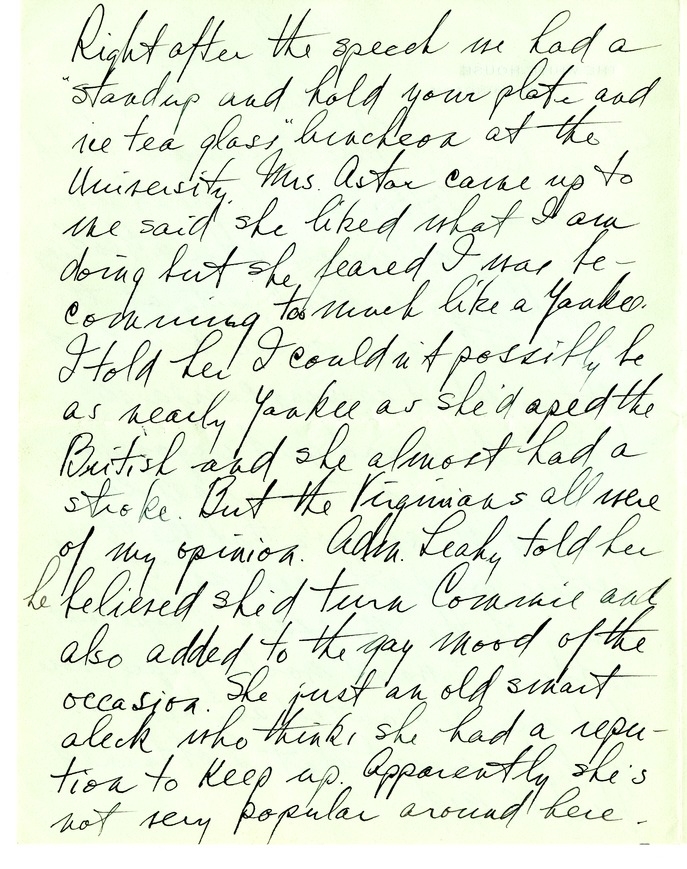 Right after the speech we had a
"standup and hold your plate and
ice tea glass" luncheon at the
University. Mrs. Astor came up to
me said she liked what I am
doing but she feared I was be-
comming to much like a Yankee.
I told her I couldn't possibly be
as nearly Yankee as she'd aped the
British and she almost had a
stroke. But the Virginians all were
of my opinion. Adm. Leahy told her
he believed she'd turn Commie and
also added to the gay mood of the
occasion. She just an old smart
aleck who thinks she had a repu-
tion to keep up. Apparently she's
not very popular around here.